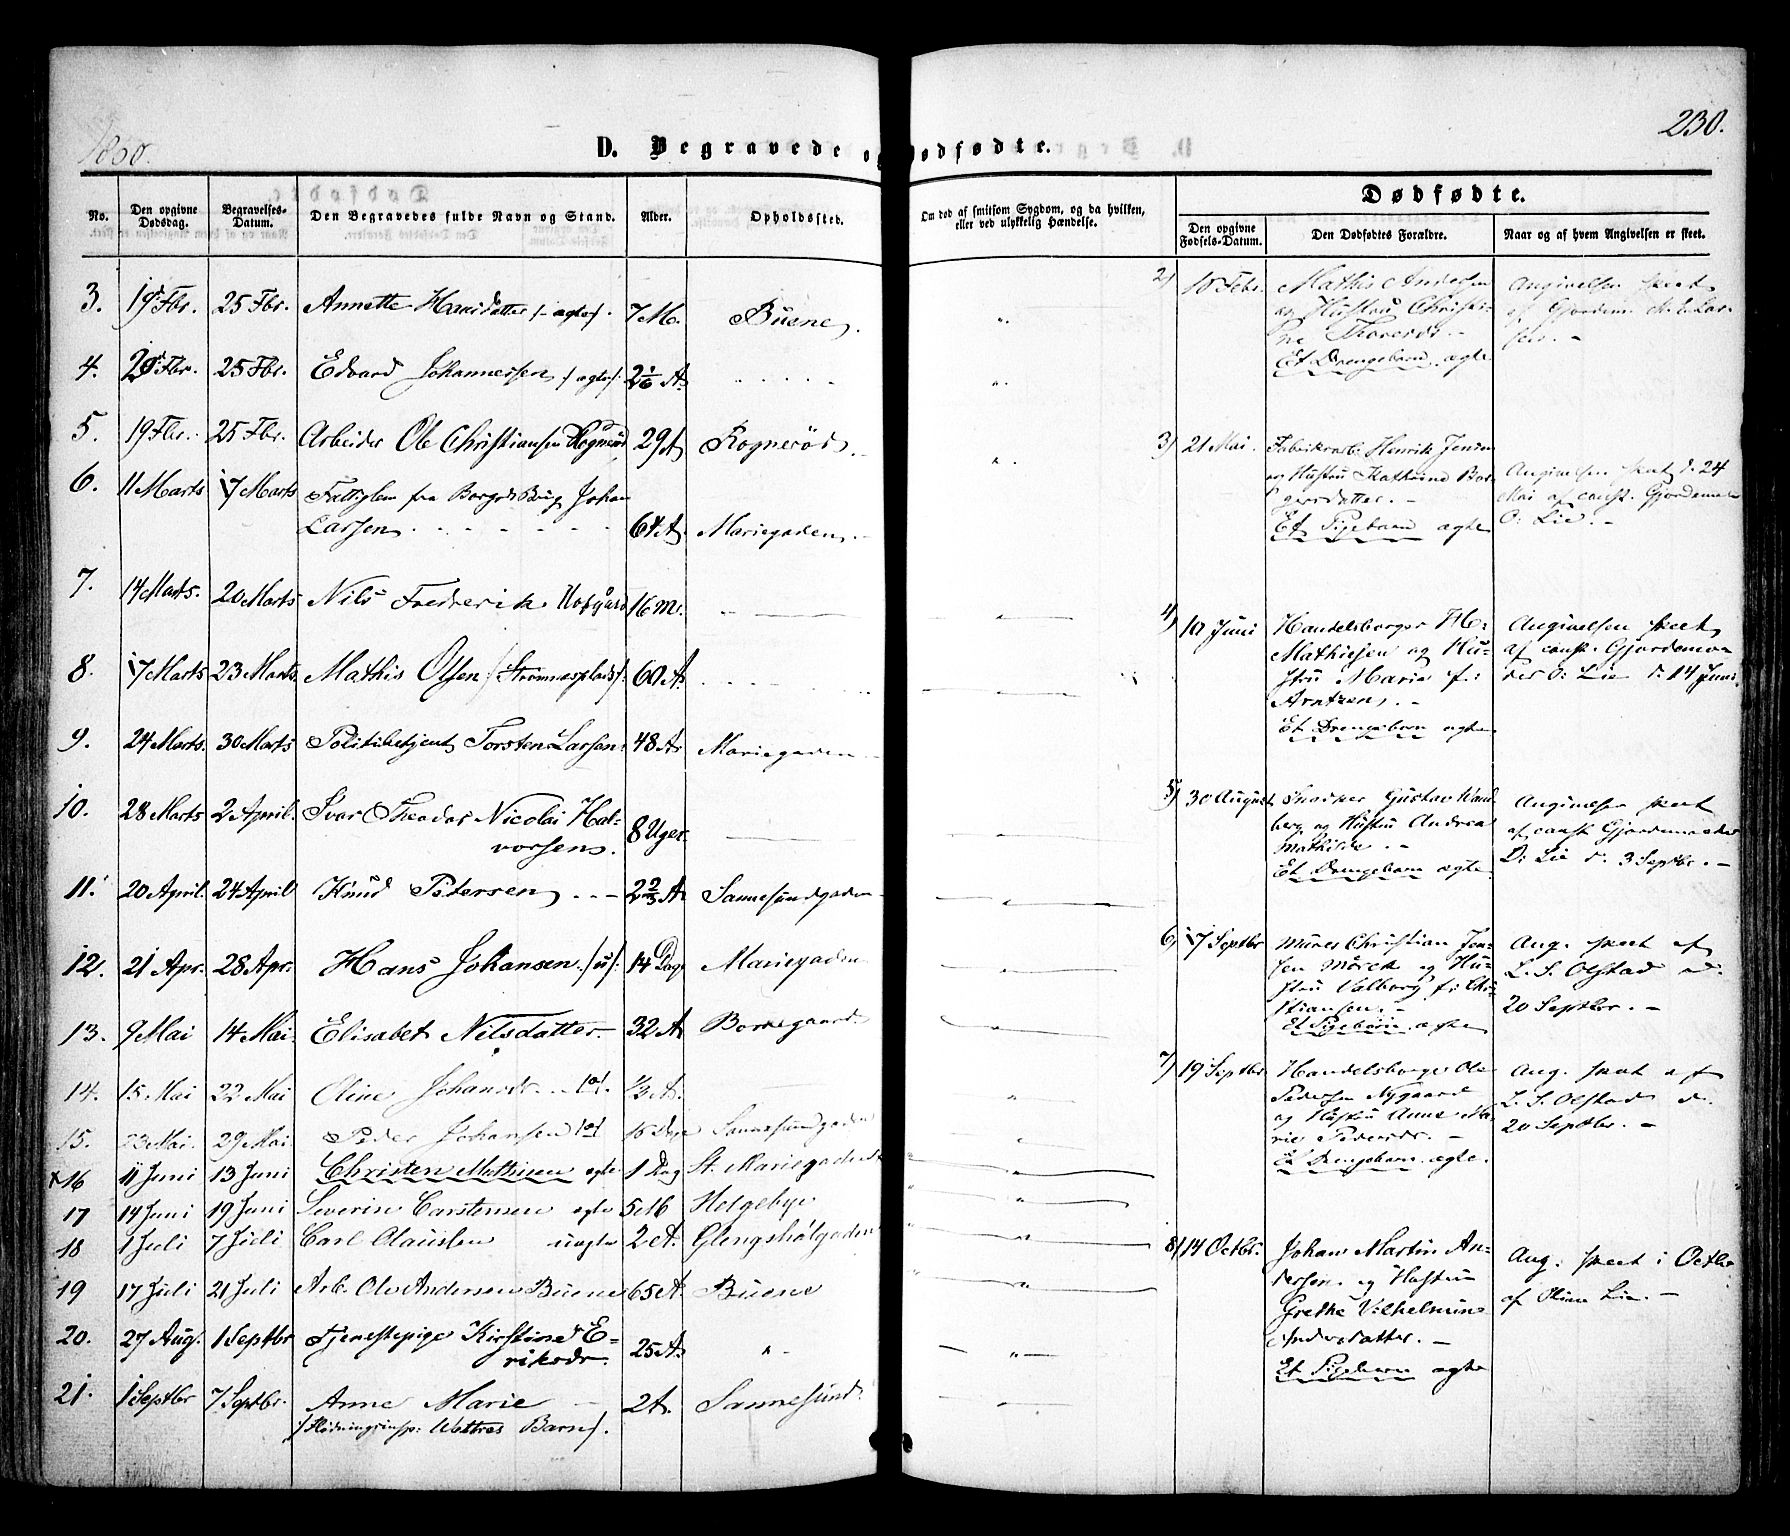 1860.
230.
D. Begravede og Dødfødte.
No.
Den opgivne Dødsdag.
Begravelses-Datum.
Den Begravedes fulde Navn og Stand.
Alder.
Opholdssted.
Om død af smitsom Sygdom, og da hvilken, eller ved ulykkelig Hændelse.
Dødfødte.
Den opgivne Fødsels-Datum.
Den Dødfødtes Forældre.
Naar og af hvem Angivelsen er skeet.
3. 19 Fbr. 25 Fbr. Annette Hansdatter /-ægte/. 7 M. Buene.
4. Fbr. 25 Fbr. Edvard Johannessen /ægte/. 2 1/6 A.
5. 19 Fbr. 25 Fbr. Arbeider Ole Christiansen Rognerød 29 A Rognerød
6. 11 Marts 17 Marts Fattiglem fra Borge Johan
Larsen 64 A. Mariegaden
7. 14 Marts. 20 Marts Nils Frederik Hofgård 16 M.
8. 17 Marts 23 Marts Mathis Olsen /Strømnesplads/: 60 A.
9. 24 Marts. 30 Marts Politibetjent Torsten Larsen 48 A. Mariegaden
10. 28 Marts 2 April. Ivar Theodor Nicolai Hal-
vorsen. 8 Uger.
11. 20 April. 24 April Knud Petersen 2 2/3 A. Sannesundgaden
12. 21 Apr. 28 Apr. Hans Johansen /u/ 14 Dag Mariegaden
13. 9 Mai 14 Mai. Elisabet Nilsdatter 32 A Borregaard
14. 15 Mai 22 Mai Oline Johansdr. 1/3 A.
15. 23 Mai. 29 Mai. Peder Johansen 16 Dage Sannesundgaden
16 11 Juni 13 Juni Christen Mathisen ægte 1 Dag St. Mariegaden
17 14 Juni 19 Juni Severin Carstensen ægte 5 M Helgebye
18 1 Juli 7 Juli Carl Clausen uægte 2 A. Glengshølgaden
19 17 Juli 21 Juli Arb. Ole Andersen Buene 65 A. Buene
20. 27 Aug. 1 Septbr Tjenestepige Kirstine E-
riksdr. 25 A. " -
21. 1 Septbr 7 Septbr. Anne Marie 2 A. Sannesund
/Flødningsinsp: Wettres Barn/.
2) 10 Febr. Mathis Andersen
og Hustru Christi-
ne Thoresdr. -
Et Drengebarn. ægte
Angivelsen skeet
af Gjordem. M. E. Lar-
sen. -
3) 21 Mai. Fabrikarb. Henrik Jensen
og Hustru Kathrine Bør-
gersdatter. -
Et Pigebarn ægte
Angivelsen skeet d. 24
Mai af const. Gjordemoder
O: Lie. -
4) 10 Juni Handelsborger H.
Mathiesen og Hu-
stru Maria f:
Arntzen, -
Et Drengebarn ægte
Angivelsen skeet
af const. Gjordemo-
der O: Lie d: 14 Juni.
5) 30 August Snedker Gustav Wand
berg og Hustru Andrea
Mathilde. -
Et Drengebarn ægte
Angivelse skeet
af const Gjordemoder
O: Lie d. 3 Septbr. -
6) 17 Septbr Murer Christian Jen-
sen Mørck og Hu-
stru Valborg f: Chri-
stiansen. -
Et Pigebarn ægte
Ang. skeet af
L. S. Olstad d.
20 Septbr. -
7) 19 Septbr Handelsborger Ole
Pedersen Nygaard
og Hustru Anne Ma-
rie Pedersdr. -
Et Drengebarn. ægte.
Ang. skeet af
L. S. Olstad d.
20 Septbr. -
8) 14 Octbr. Johan Martin An-
dersen og Hustru
Grethe Vilhelmine
Andersdatter. -
Et Pigebarn ægte
Ang. skeet i Octbr
af Oline Lie. -